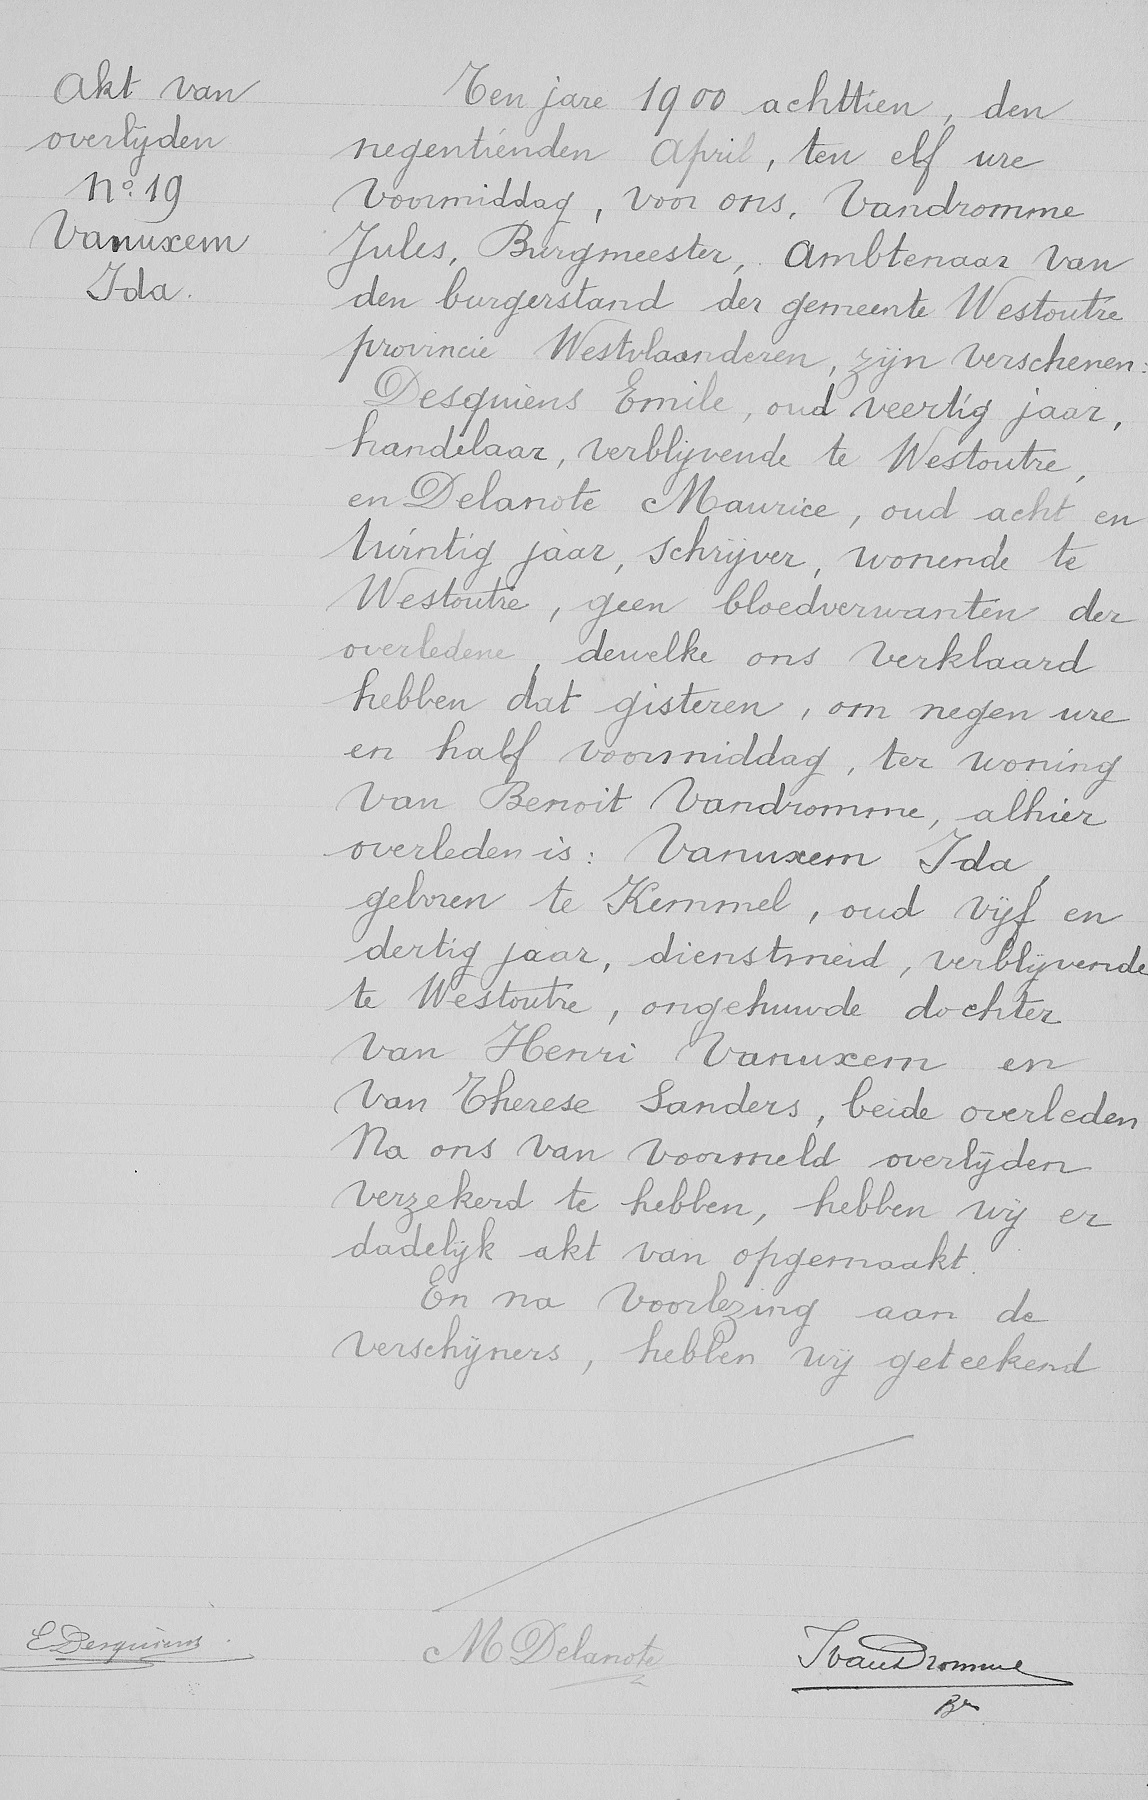 Akt van
overlijden
No. 19
Vanuxem
Ida.
Ten jare 1900 achttien, den
negentienden April, ten elf ure
voormiddag, voor ons, Vandromme
Jules, Burgmeester, Ambtenaar van
den burgerstand der gemeente Westoutre
provincie Westvlaanderen, zijn verschenen:
Desquiens Emile, oud veertig jaar,
handelaar, verblijvende te Westoutre,
en Delanote Maurice, oud acht en
twintig jaar, schrijver, wonende te
Westoutre, geen bloedverwanten der
overledene, dewelke ons verklaard
hebben dat gisteren, om negen ure
en half voormiddag, ter woning
van Benoit Vandromme, alhier
overleden is: Vanuxem Ida,
geboren te Kemmel, oud vijf en
dertig jaar, dienstmeid, verblijvende
te Westoutre, ongehuwde dochter
van Henri Vanuxem en
van Therese Sanders, beide overleden
Na ons van voormeld overlijden
verzekerd te hebben, hebben wij er
dadelijk akt van opgemaakt.
En na voorlezing aan de
verschijners, hebben wij geteekend
E Desquiens
M Delanote
J VanDromme
Br